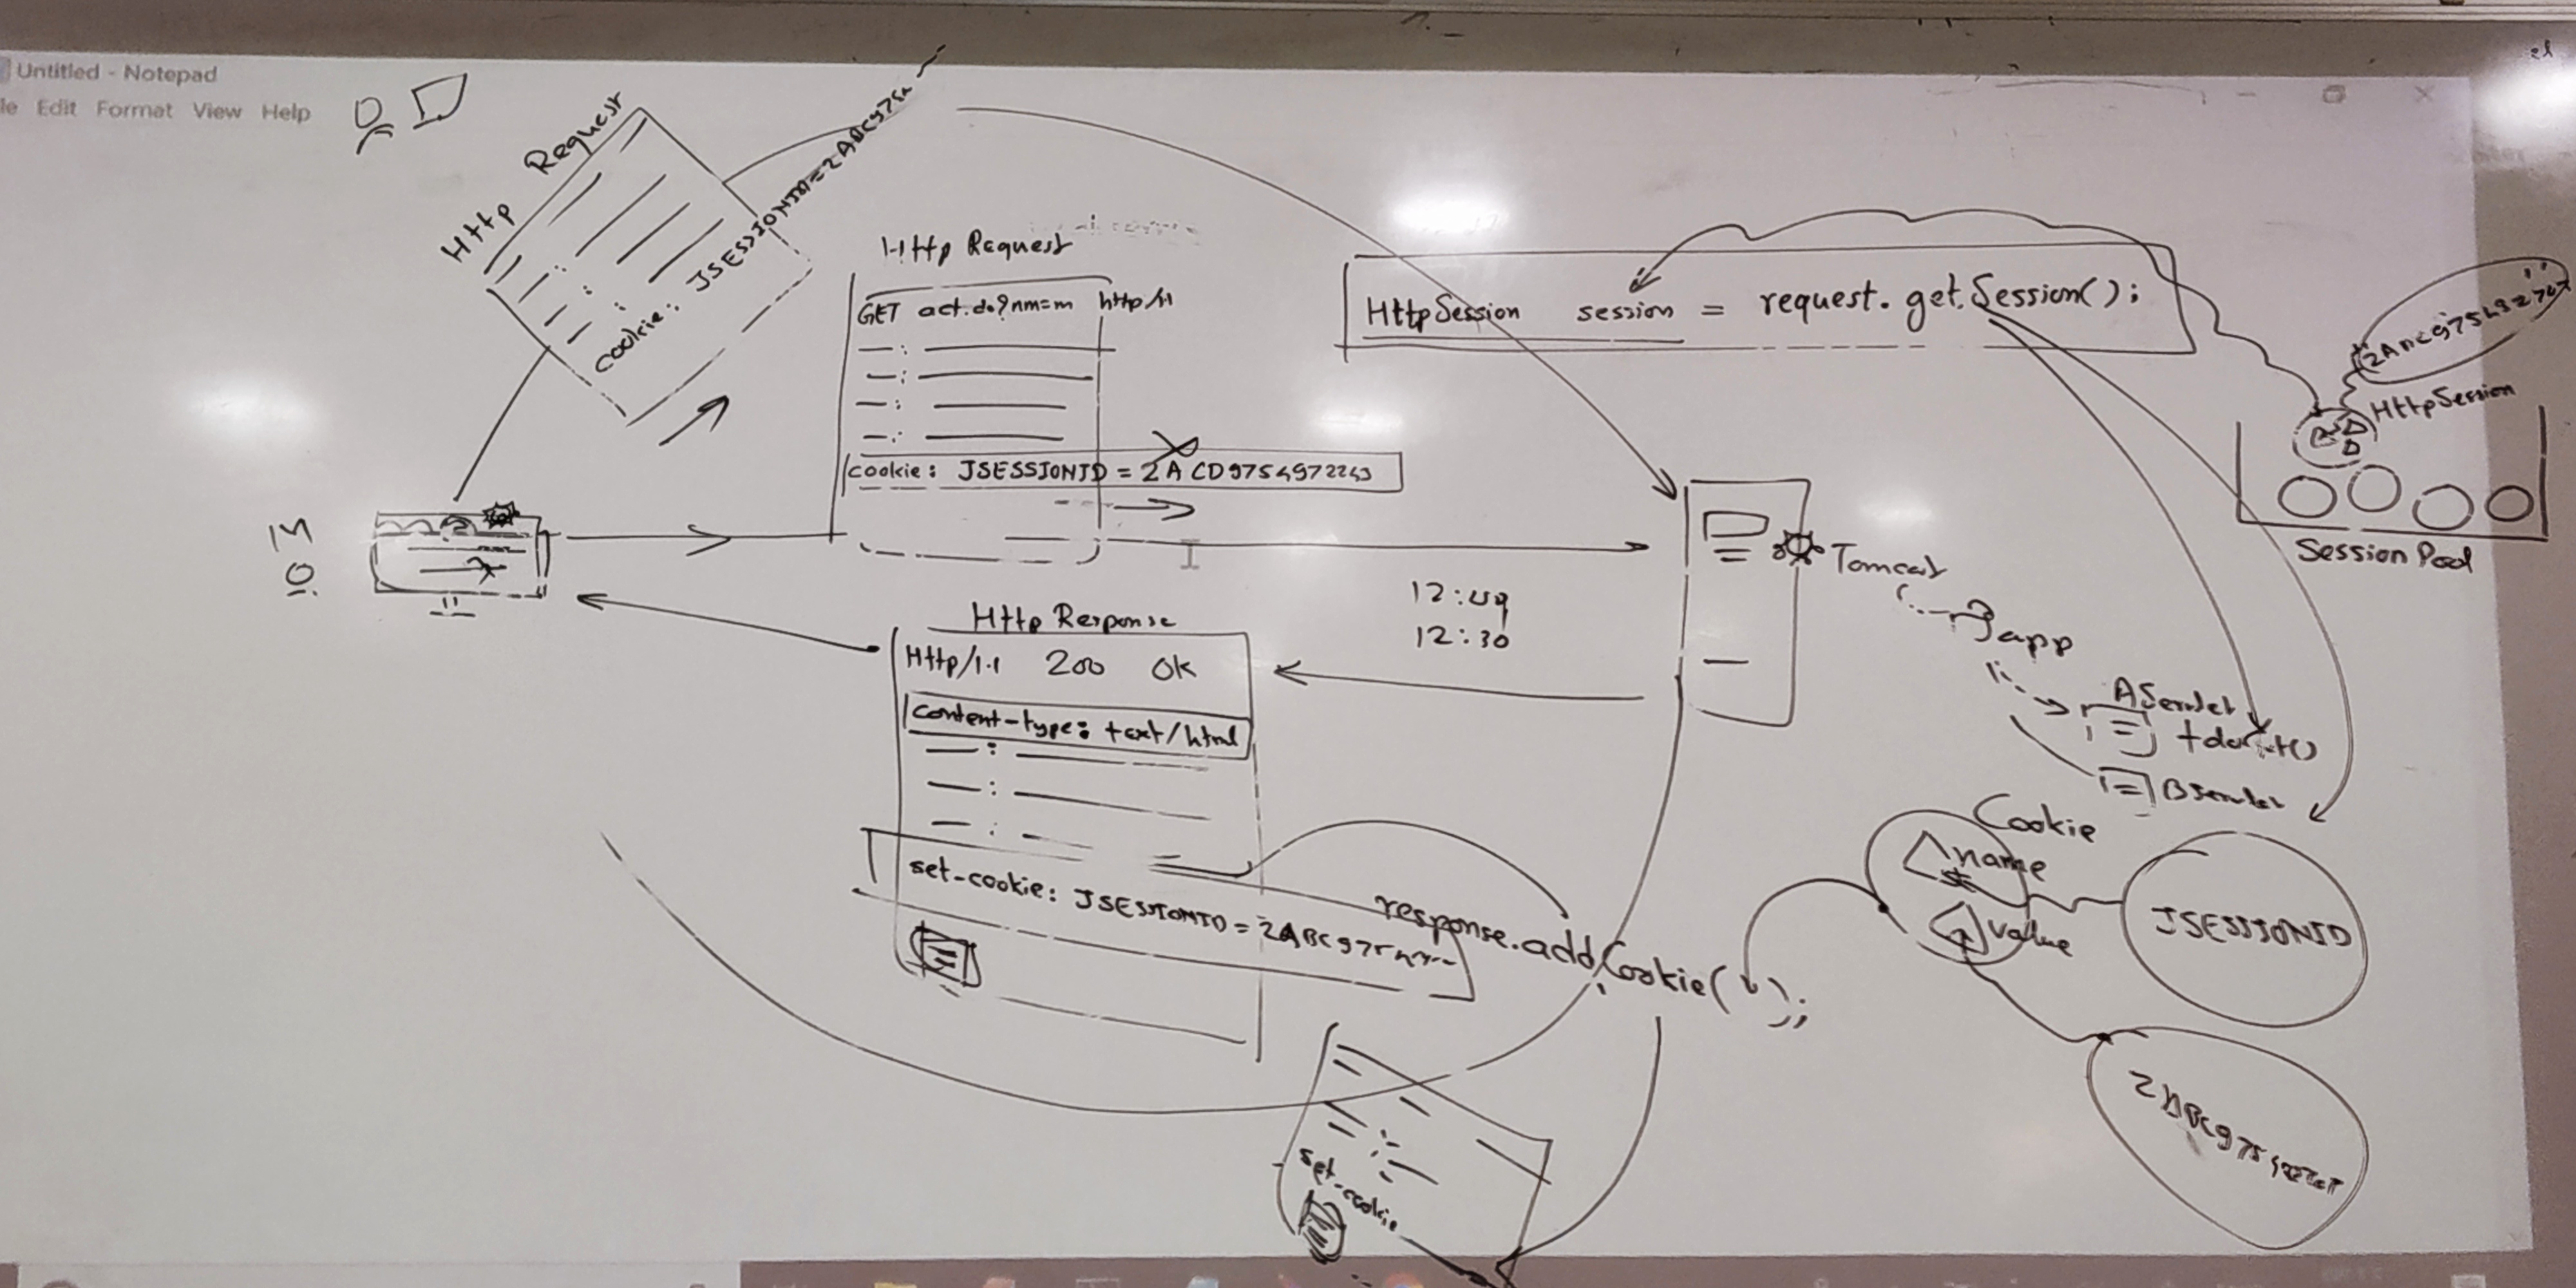 Untitled - Notepad
Edit Format View Help
Http Request
cookie: JSESSIONID=2ABC975
Http Request
GET act.do?nm=m http/1.1
cookie: JSESSIONID = 2ACD9754972243
HttpSession session = request.getSession();
HttpSession
Session Pool
Tomcat
app
AServlet
BServlet
12:49
12:30
Http Response
Http/1.1 200 OK
content-type: text/html
set-cookie: JSESSIONID = 2ABC975
response.addCookie( );
Cookie
name
value
JSESSIONID
set-cookie